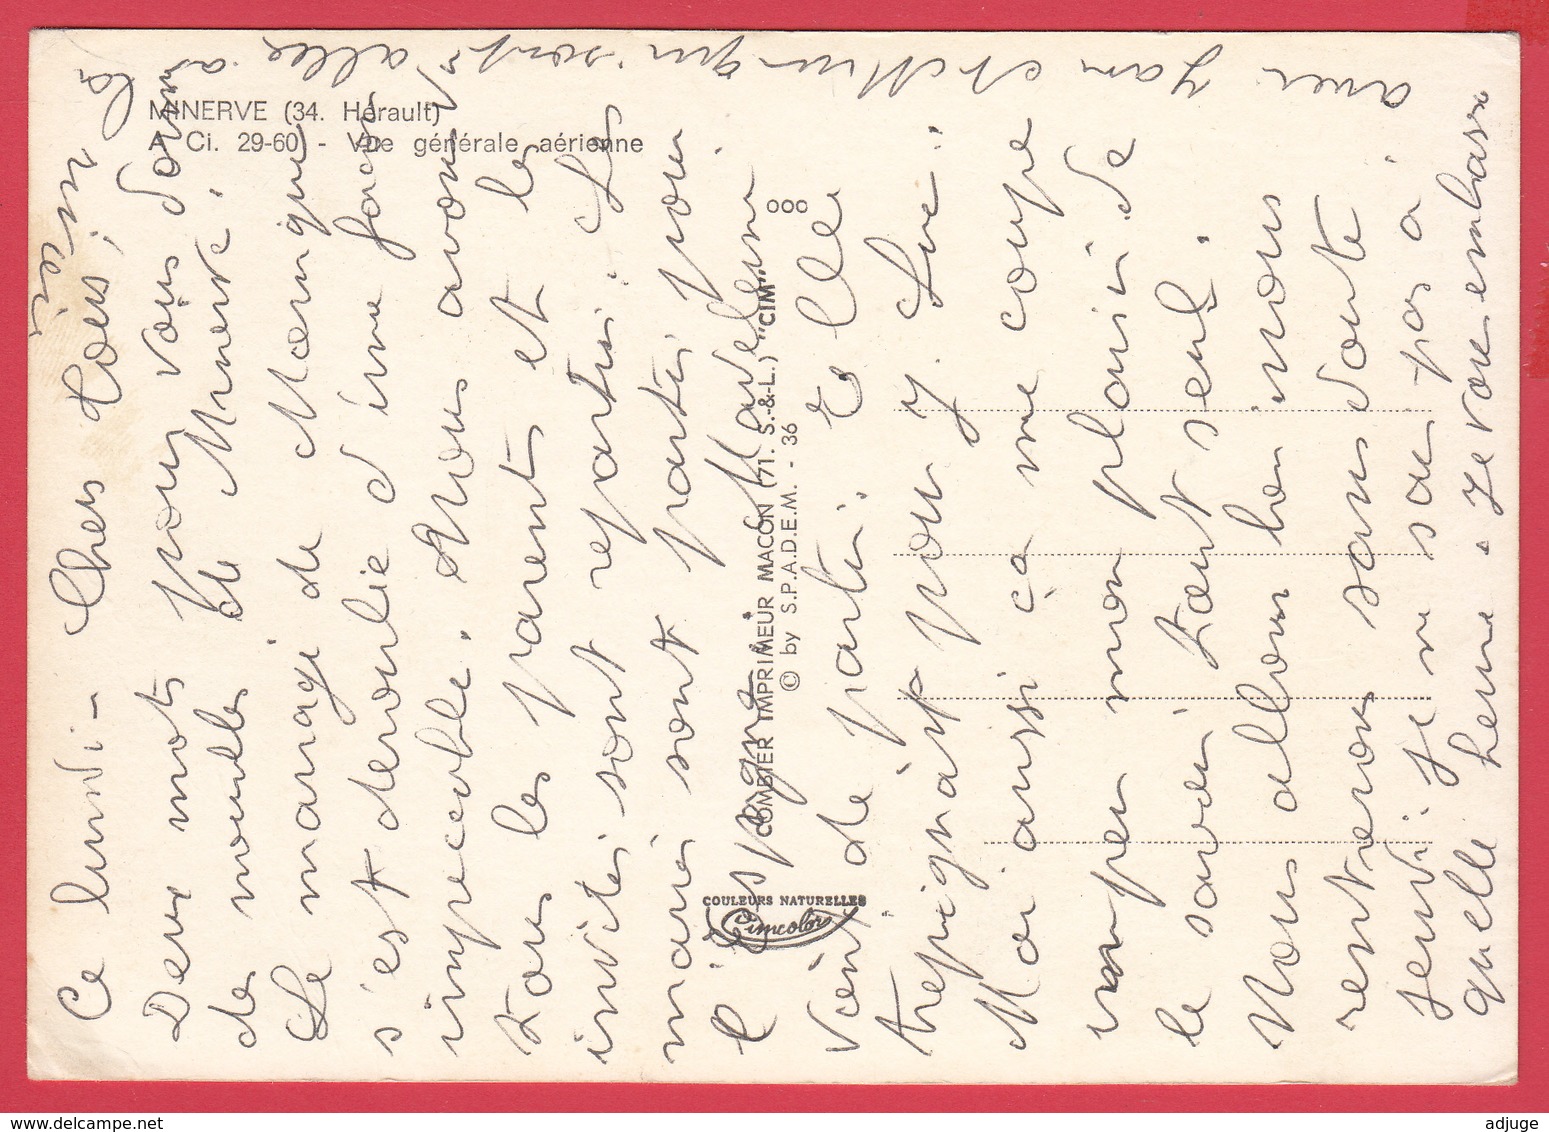 MINERVE (34. Hérault)
A. Ci. 29-60 - Vue générale aérienne
COMBIER IMPRIMEUR MACON (71. S.-&-L.) "CIM"
© by S.P.A.D.E.M. - 36
ooo
COULEURS NATURELLES
Cimcolor
Ce lundi - Chers tous,
Deux mots pour vous donner
des nouvelles de Minerve.
Le mariage de Monique
s'est déroulé d'une façon
impeccable. Nous avons vu
tous les parents et les
invités sont repartis. Les
mariés sont partis pour
l'Espagne. Madeleine
vient de partir. Elle
trépignait pour y être.
Moi aussi ça me coupe
un peu mon plaisir de
le savoir tout seul.
Nous allons bien nous
rentrerons sans doute
jeudi je ne sais pas à
quelle heure. Je vous embrasse
avec Yan et qui sont allés à
la